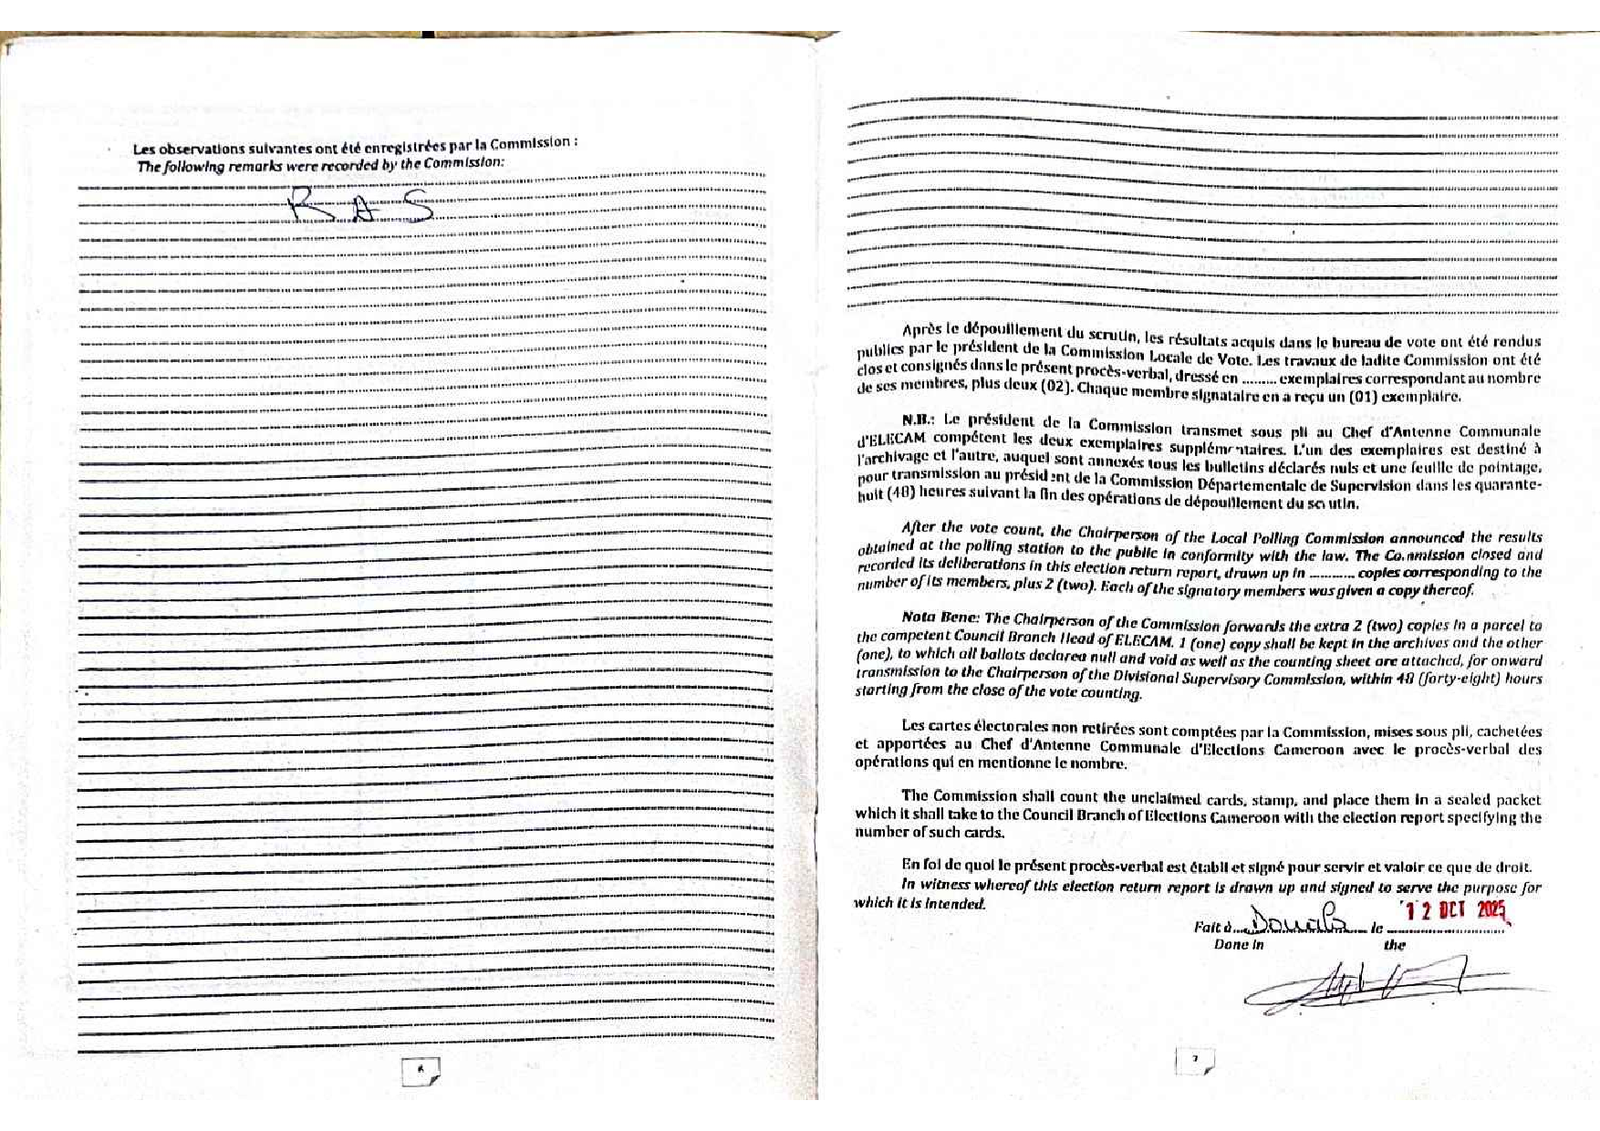 Les observations suivantes ont été enregistrées par la Commission :
The following remarks were recorded by the Commission:
R A S
6
Après le dépouillement du scrutin, les résultats acquis dans le bureau de vote ont été rendus
publics par le président de la Commission Locale de Vote. Les travaux de ladite Commission ont été
clos et consignés dans le présent procès-verbal, dressé en ......... exemplaires correspondant au nombre
de ses membres, plus deux (02). Chaque membre signataire en a reçu un (01) exemplaire.
N.B.: Le président de la Commission transmet sous pli au Chef d'Antenne Communale
d'ELECAM compétent les deux exemplaires supplémentaires. L'un des exemplaires est destiné à
l'archivage et l'autre, auquel sont annexés tous les bulletins déclarés nuls et une feuille de pointage,
pour transmission au président de la Commission Départementale de Supervision dans les quarante-
huit (48) heures suivant la fin des opérations de dépouillement du scrutin.
After the vote count, the Chairperson of the Local Polling Commission announced the results
obtained at the polling station to the public in conformity with the law. The Commission closed and
recorded its deliberations in this election return report, drawn up in ........... copies corresponding to the
number of its members, plus 2 (two). Each of the signatory members was given a copy thereof.
Nota Bene: The Chairperson of the Commission forwards the extra 2 (two) copies in a parcel to
the competent Council Branch Head of ELECAM. 1 (one) copy shall be kept in the archives and the other
(one), to which all ballots declared null and void as well as the counting sheet are attached, for onward
transmission to the Chairperson of the Divisional Supervisory Commission, within 48 (forty-eight) hours
starting from the close of the vote counting.
Les cartes électorales non retirées sont comptées par la Commission, mises sous pli, cachetées
et apportées au Chef d'Antenne Communale d'Elections Cameroon avec le procès-verbal des
opérations qui en mentionne le nombre.
The Commission shall count the unclaimed cards, stamp, and place them in a sealed packet
which it shall take to the Council Branch of Elections Cameroon with the election report specifying the
number of such cards.
En foi de quoi le présent procès-verbal est établi et signé pour servir et valoir ce que de droit.
In witness whereof this election return report is drawn up and signed to serve the purpose for
which it is intended.
Fait à Douala le 12 OCT 2025
Done in the
7